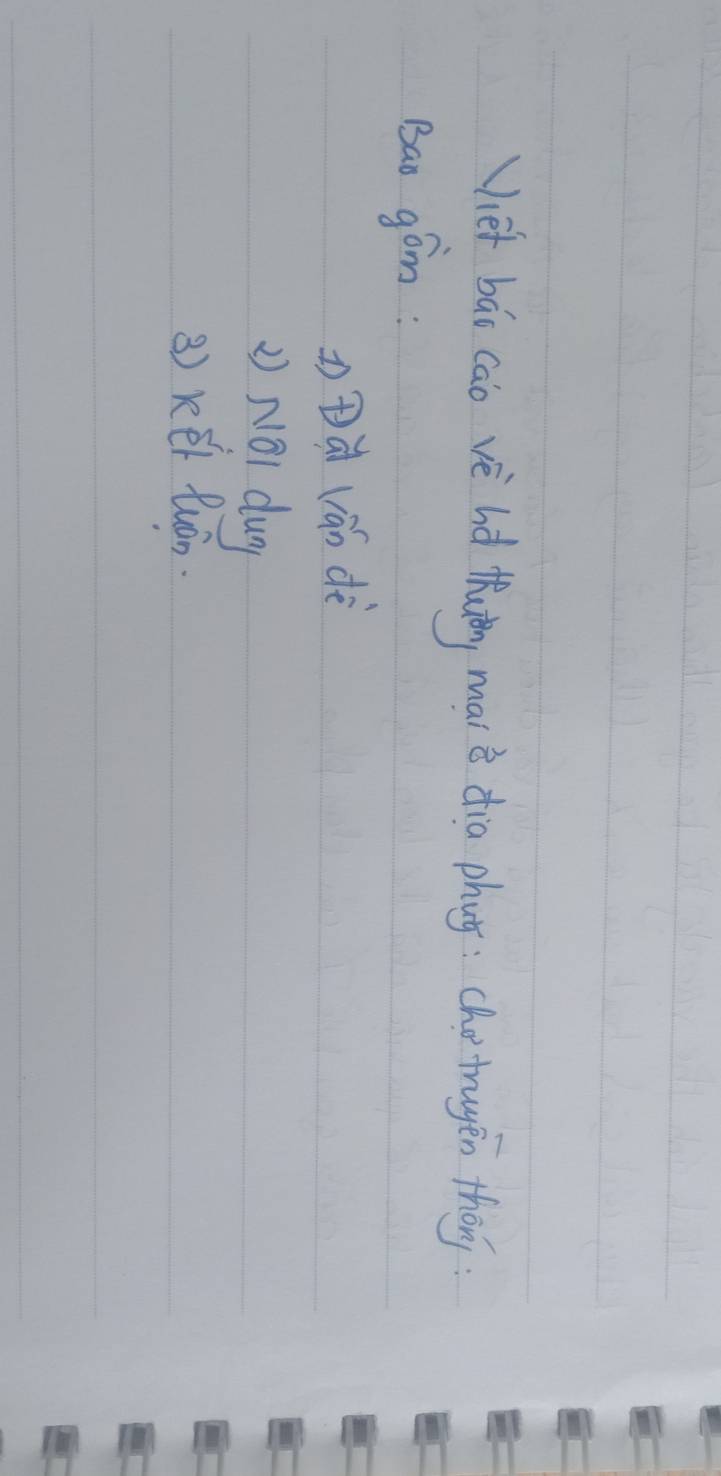 Viết báo cáo về hđ thương mại ở địa phương: chợ truyền thống:
Bao gồm:
1) Đặt vấn đề
2) Nội dung
3) Kết luận.